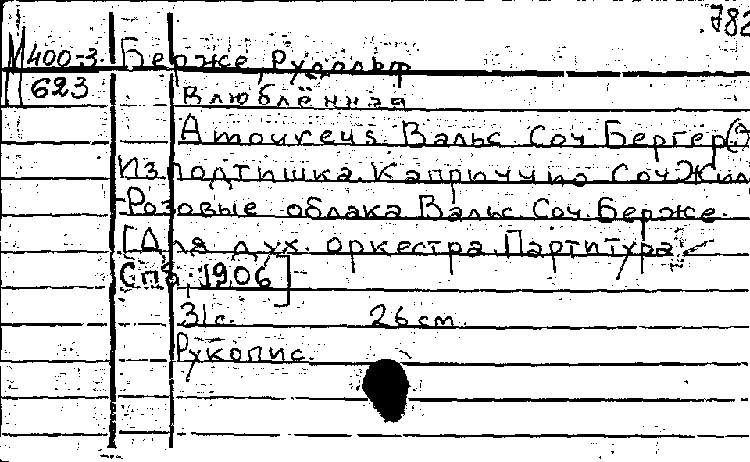 782
М400-3 Берже, Рудольф
623 Влюблённая
Amoureus. Вальс. Соч. Бергер(?)
Изподтишка. Каприччио Соч. Жил
Розовые облака Вальс. Соч. Берже.
[Для дух. оркестра. Партитура
Спб, 1906]
31с. 26 cm.
Рукопис.